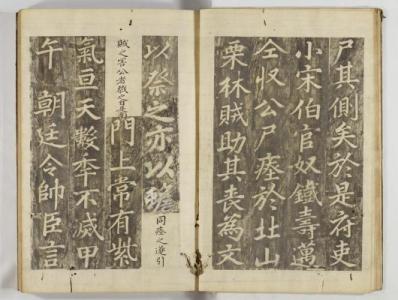 尸其側矣於是府吏
小宋伯官奴鐵壽萬
仝收公尸瘞於北山
栗林賊助其喪爲文
以祭之亦以
同瘞之遂引
賊之害公者戮之
門上常有紫
氣亘天數年不滅甲
午朝廷令帥臣言